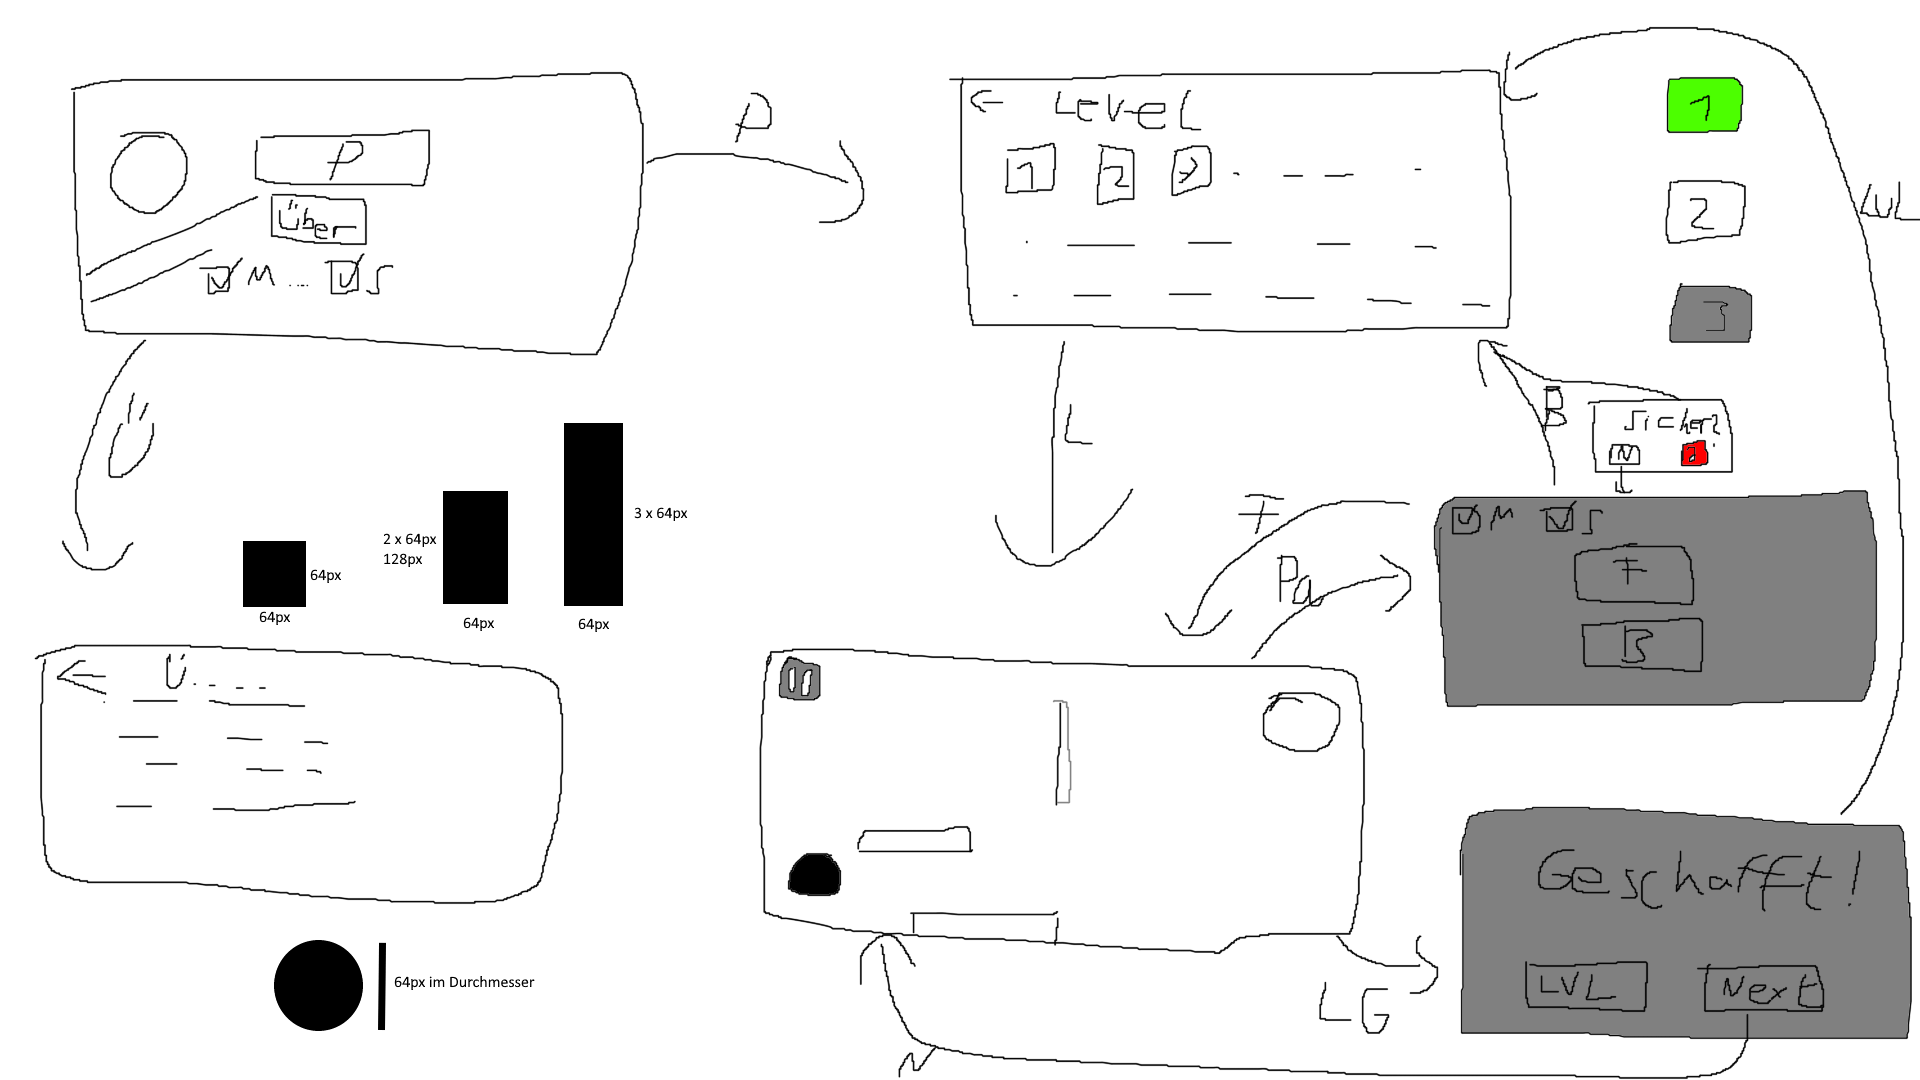 P
Über
M....
S
P
← Level
1
2
3
1
2
3
LVL
Ü
L
B
Sicher?
N
J
64px
64px
2 x 64px
128px
64px
3 x 64px
64px
F
Pa
M
S
F
B
← Ü....
64px im Durchmesser
LG
N
Geschafft!
LVL
Next